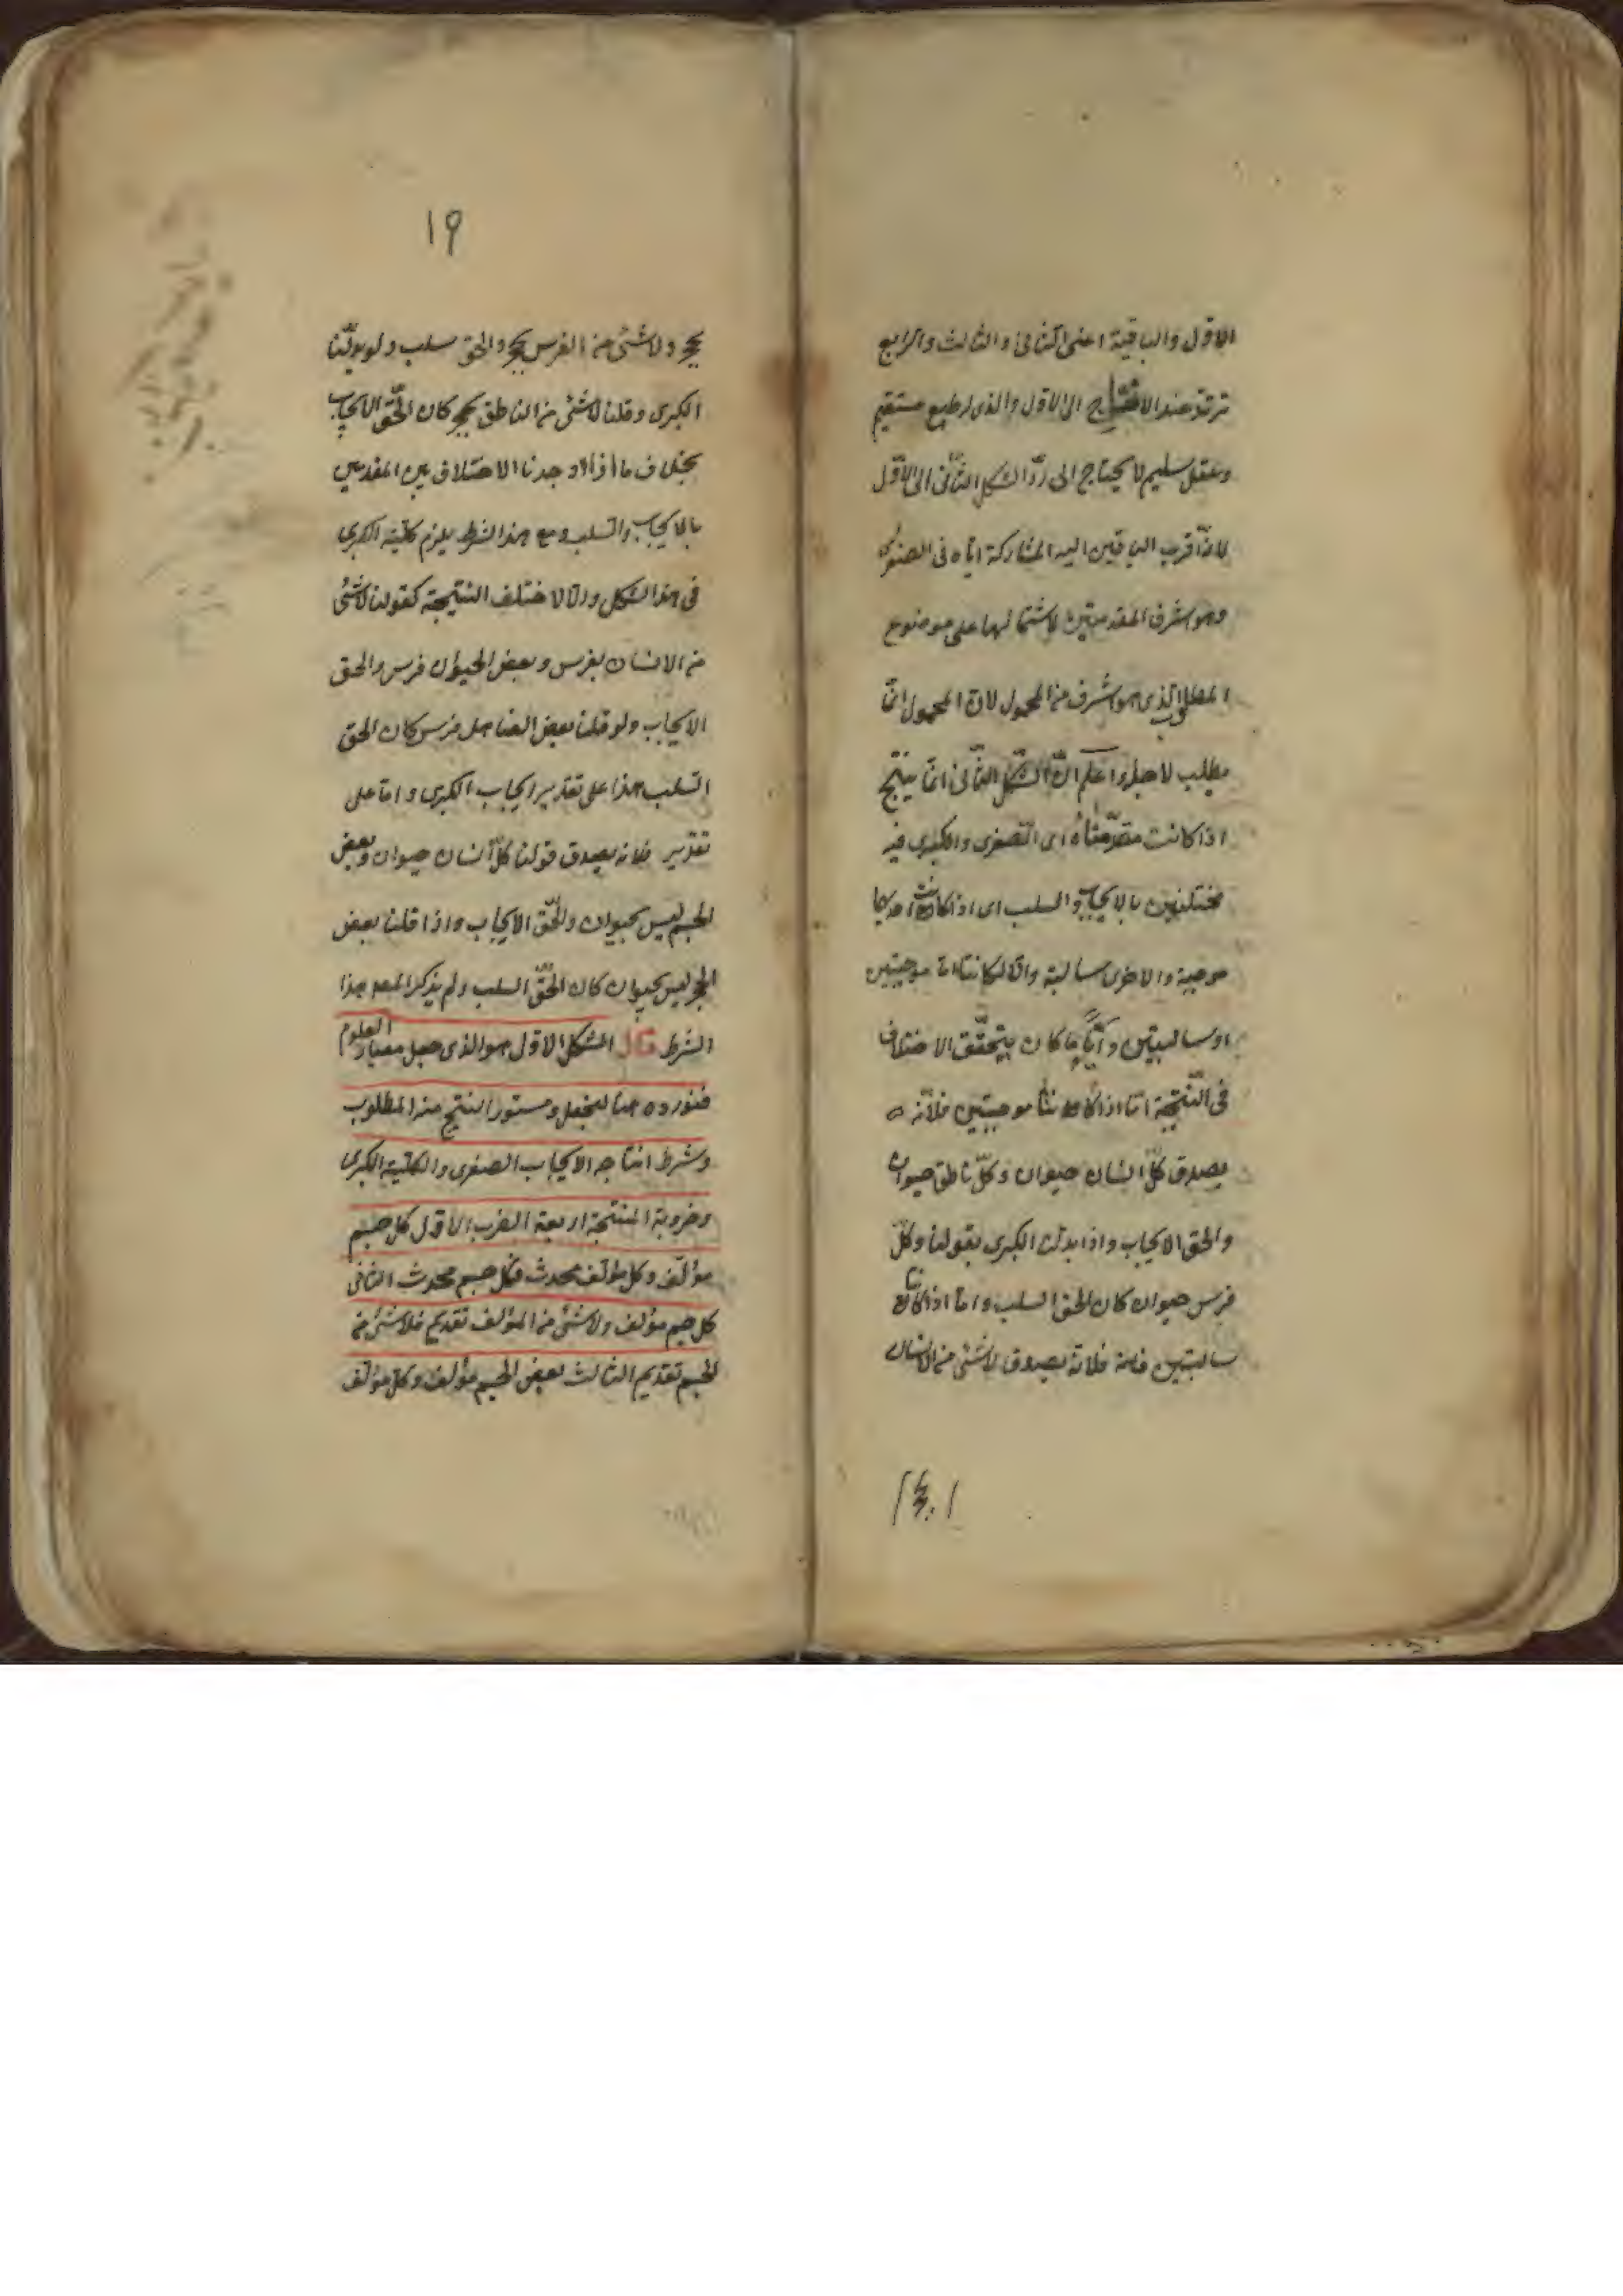 الاوّل والباقية اعنى الثانى والثالث والرابع
ترتدّ عند الاحتياج الى الاول والذى له طبع مستقيم
وعقل سليم لا يحتاج الى ردّ الشكل الثّانى الى الاوّل
لانّه اقرب الباقين اليه لمشاركة ايّاه فى الصغرى
وهو اشرف المقدمتين لاشتمالها على موضوع
المطلوب الذى هو اشرف من المحمول لانّ المحمول انّما
يطلب لاجله واعلم انّ الشّكل الثّانى انّما ينتج
اذا كانت مقدّمتاه اى الصّغرى والكبرى فيه
مختلفتين بالايجاب والسلب اى اذا كانت احديهما
موجبة والاخرى سالبة والّا لكانتا امّا موجبتين
او سالبتين وايّا ما كان يتحقّق الاختلاف
فى النّتيجة امّا اذا كانتا موجبتين فلانّه
يصدق كلّ انسان حيوان وكلّ ناطق حيوان
والحق الايجاب واذا بدلت الكبرى بقولنا وكلّ
فرس حيوان كان الحق السلب وامّا اذا كانتا
سالبتين فلانّه يصدق لا شئ من الانسان
١٩
بحجر ولا شئ من الفرس بحجر والحق سلب ولو بدّلنا
الكبرى وقلنا لا شئ من الناطق بحجر كان الحّق الايجاب
بخلاف ما اذا وجدنا الاختلاف بين المقدمتين
بالايجاب والسلب ومع هذا الشرط يلزم كلّية الكبرى
فى هذا الشكل والّا لاختلف النتيجة كقولنا لا شئ
من الانسان بفرس وبعض الحيوان فرس والحق
الايجاب ولو قلنا بعض الصاهل فرس كان الحق
السّلب هذا على تقدير ايجاب الكبرى وامّا على
تقدير فلانه يصدق قولنا كلّ انسان حيوان وبعض
الجسم ليس بحيوان والحّق الايجاب واذا قلنا بعض
الحجر ليس بحيوان كان الحّق السلب ولم يذكر المص هذا
الشرط قال الشكل الاوّل هو الذى جعل معيار العلوم
فنورده هنا ليجعل دستورا لينتج منه المطلوب
وشرط انتاجه الايجاب الصغرى والكلّية الكبرى
وضروبه المنتجة اربعة الضرب الاوّل كل جسم
مؤلّف وكل مؤلّف محدث فكل جسم محدث الثانى
كل جسم مؤلف ولا شئ من المؤلف بقديم فلا شئ من
الجسم بقديم الثالث بعض الجسم مؤلف وكل مؤلّف